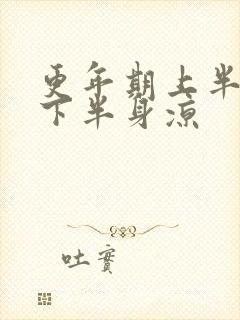 更年期上半
下半身凉
吐實